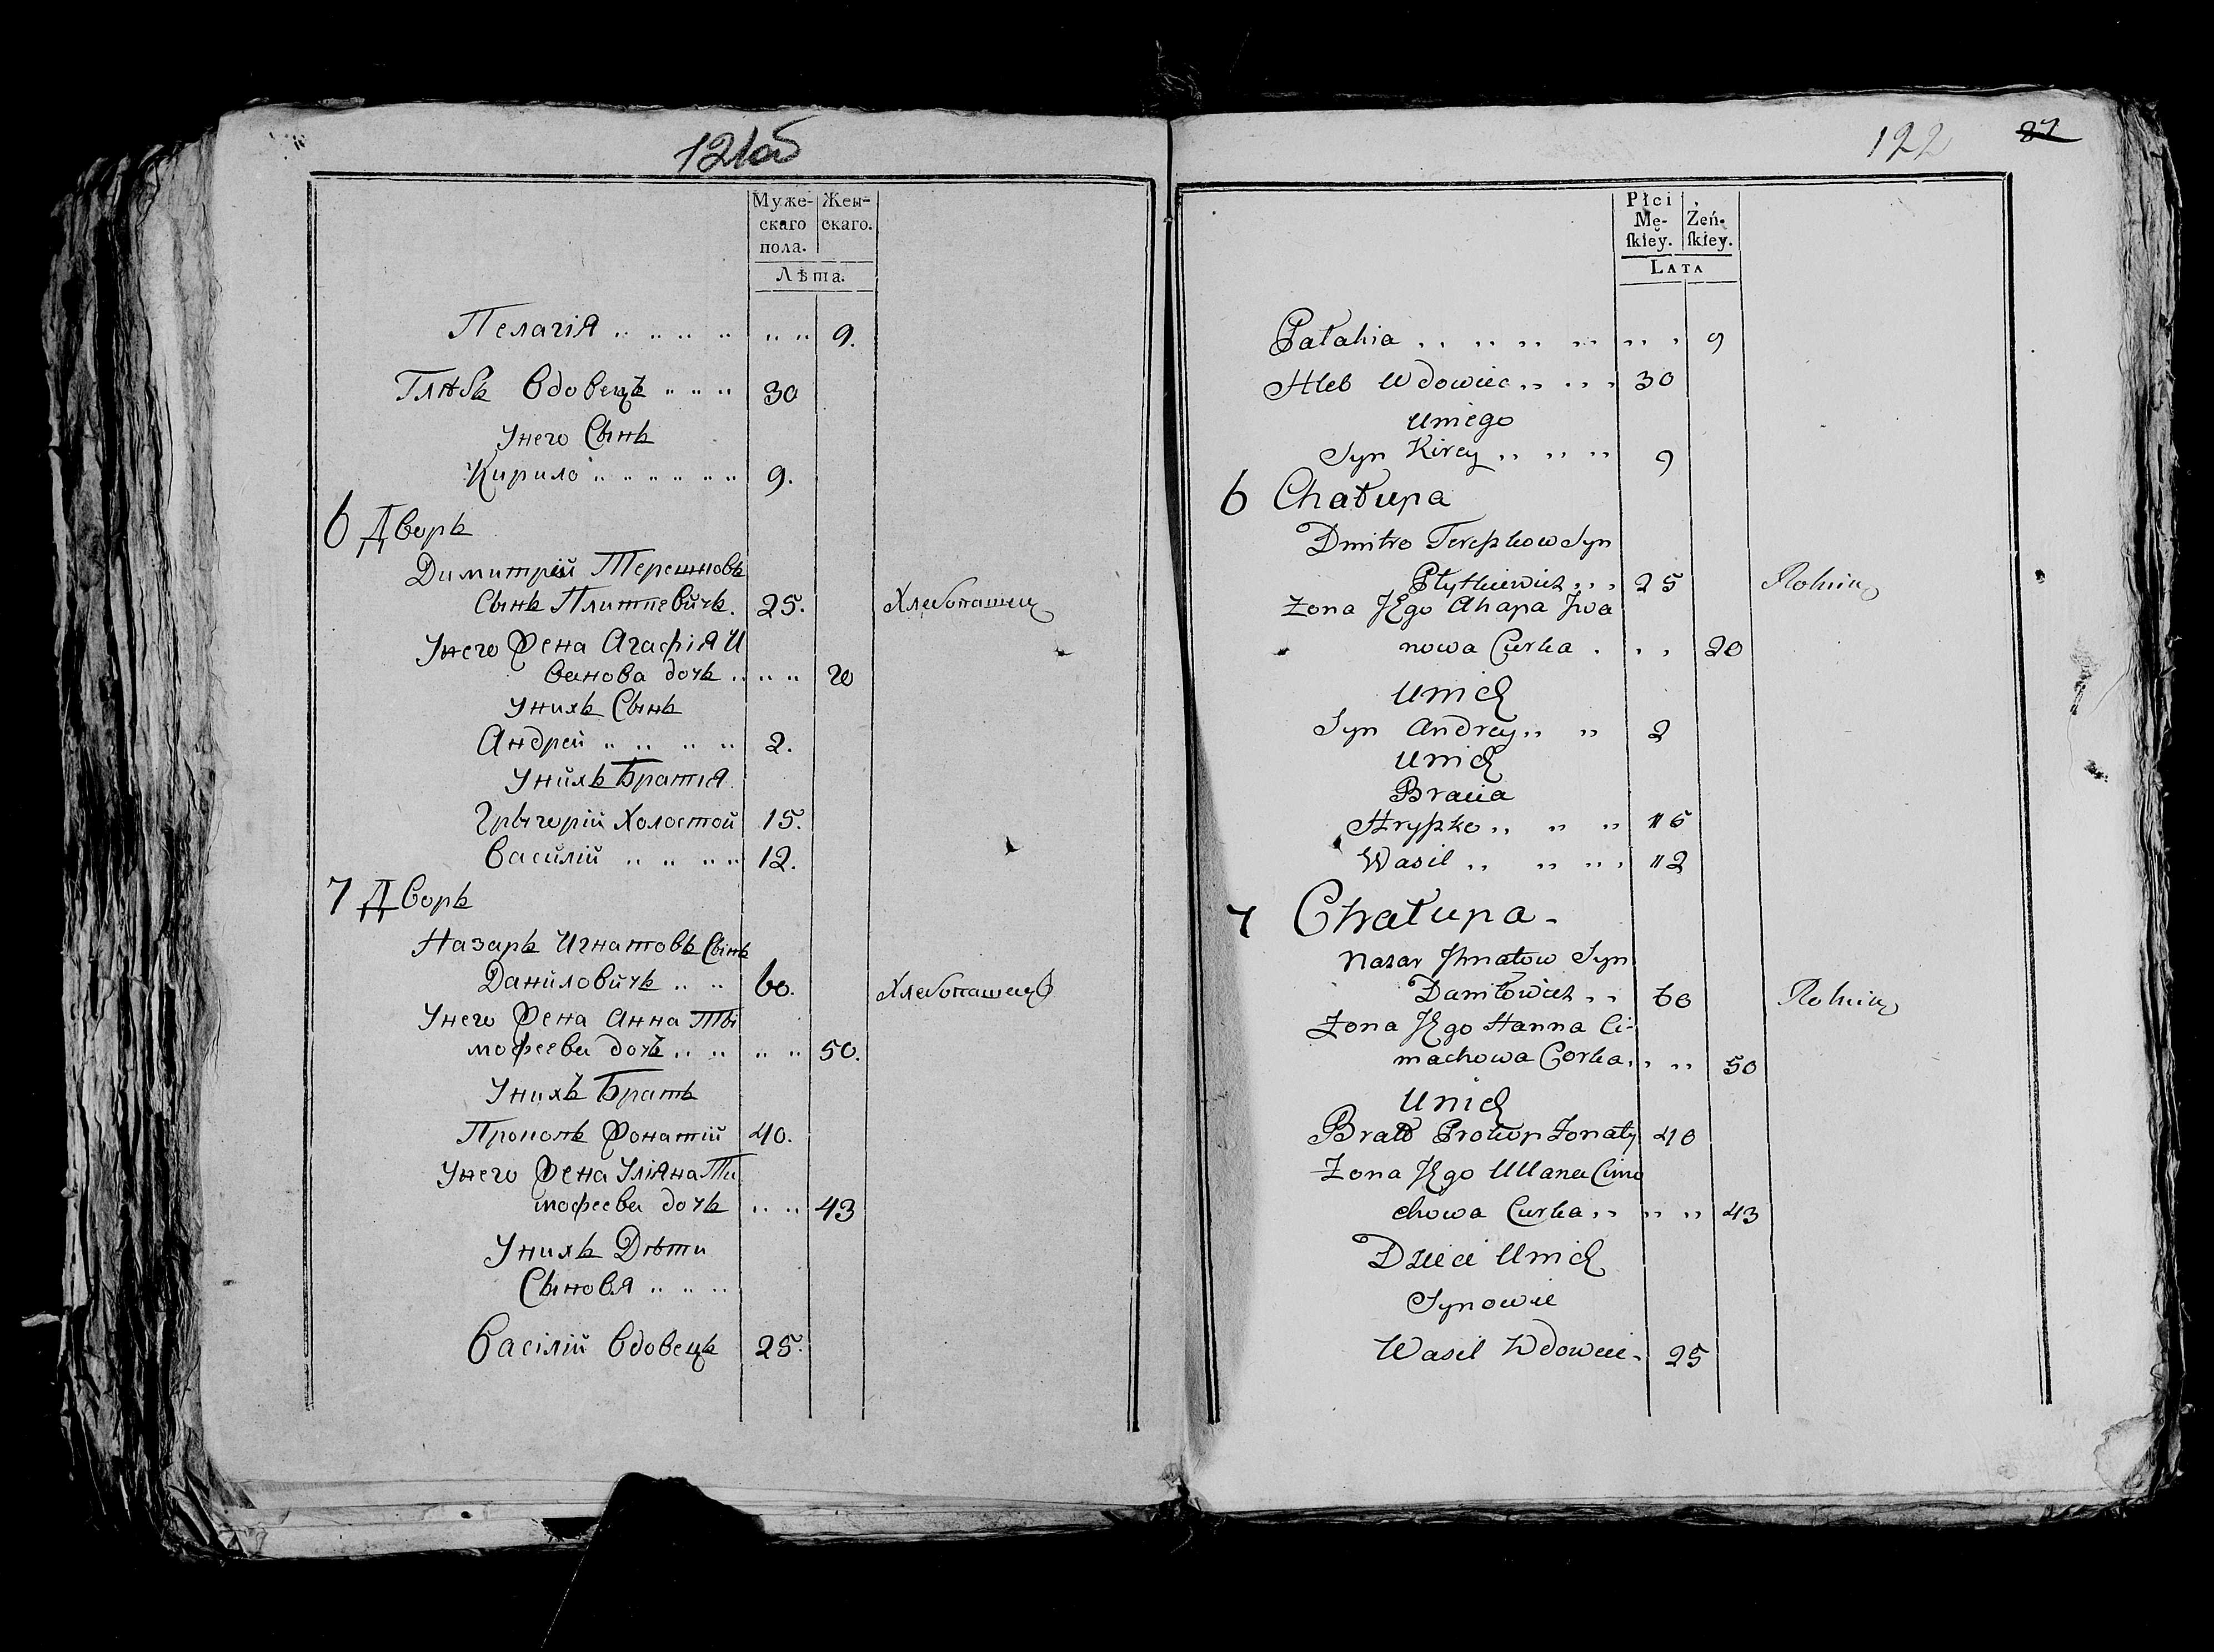 121об
Муже-
скаго
пола.
Жен-
скаго.
Лѣта.
Пелагія .. .. .. .. .. .. 9.
Глѣбъ вдовецъ .. .. .. 30
Унего Сынъ
Кирило .. .. .. .. .. 9.
6 Дворъ
Димитрій Терешковъ
Сынъ Плиткевичъ. 25. Хлебопашец
Унего Жена Агафія И
ванова дочь .. .. .. 20
Унихъ Сынъ
Андрей .. .. .. .. 2.
Унихъ Братія
Грыгорій Холостой 15.
Василій .. .. .. .. 12.
7 Дворъ
Назаръ Игнатовъ Сынъ
Даниловичъ .. .. 60. Хлебопашецъ
Унего Жена Анна Ти
мофеева дочь .. .. .. .. 50.
Унихъ Братъ
Прокопъ Жонатій 40.
Унего Жена Уліяна Ти
мофеева дочь .. .. 43
Унихъ Дѣти
Сыновя .. .. ..
Василій вдовецъ 25.
122 37
Płci
Mę-
ſkiey.
Żeń-
ſkiey.
LATA
Pałahia .. .. .. .. .. .. .. 9
Hleb Wdowiec .. .. .. 30
Uniego
Syn Kirey .. .. .. 9
6 Chałupa
Dmitro Tereszkow Syn
Płytkiewicz .. .. 25 Rolnik
Zona JEgo Ahapa Jwa
nowa Curka . .. .. 20
Unich
Syn Andrey .. .. 2
Unich
Bracia
Hryszko .. .. .. 15
Wasil .. .. .. .. 12
7 Chałupa -
Nazar Jhnatow Syn
Daniłowicz .. .. 60 Rolnik
Zona JEgo Hanna Ci-
machowa Corka .. .. .. 50
Unich
Brat Prokop Zonaty 40
Zona JEgo Ullana Cimo
chowa Curka .. .. .. 43
Dzieci Unich
Synowie
Wasil Wdowiec - 25